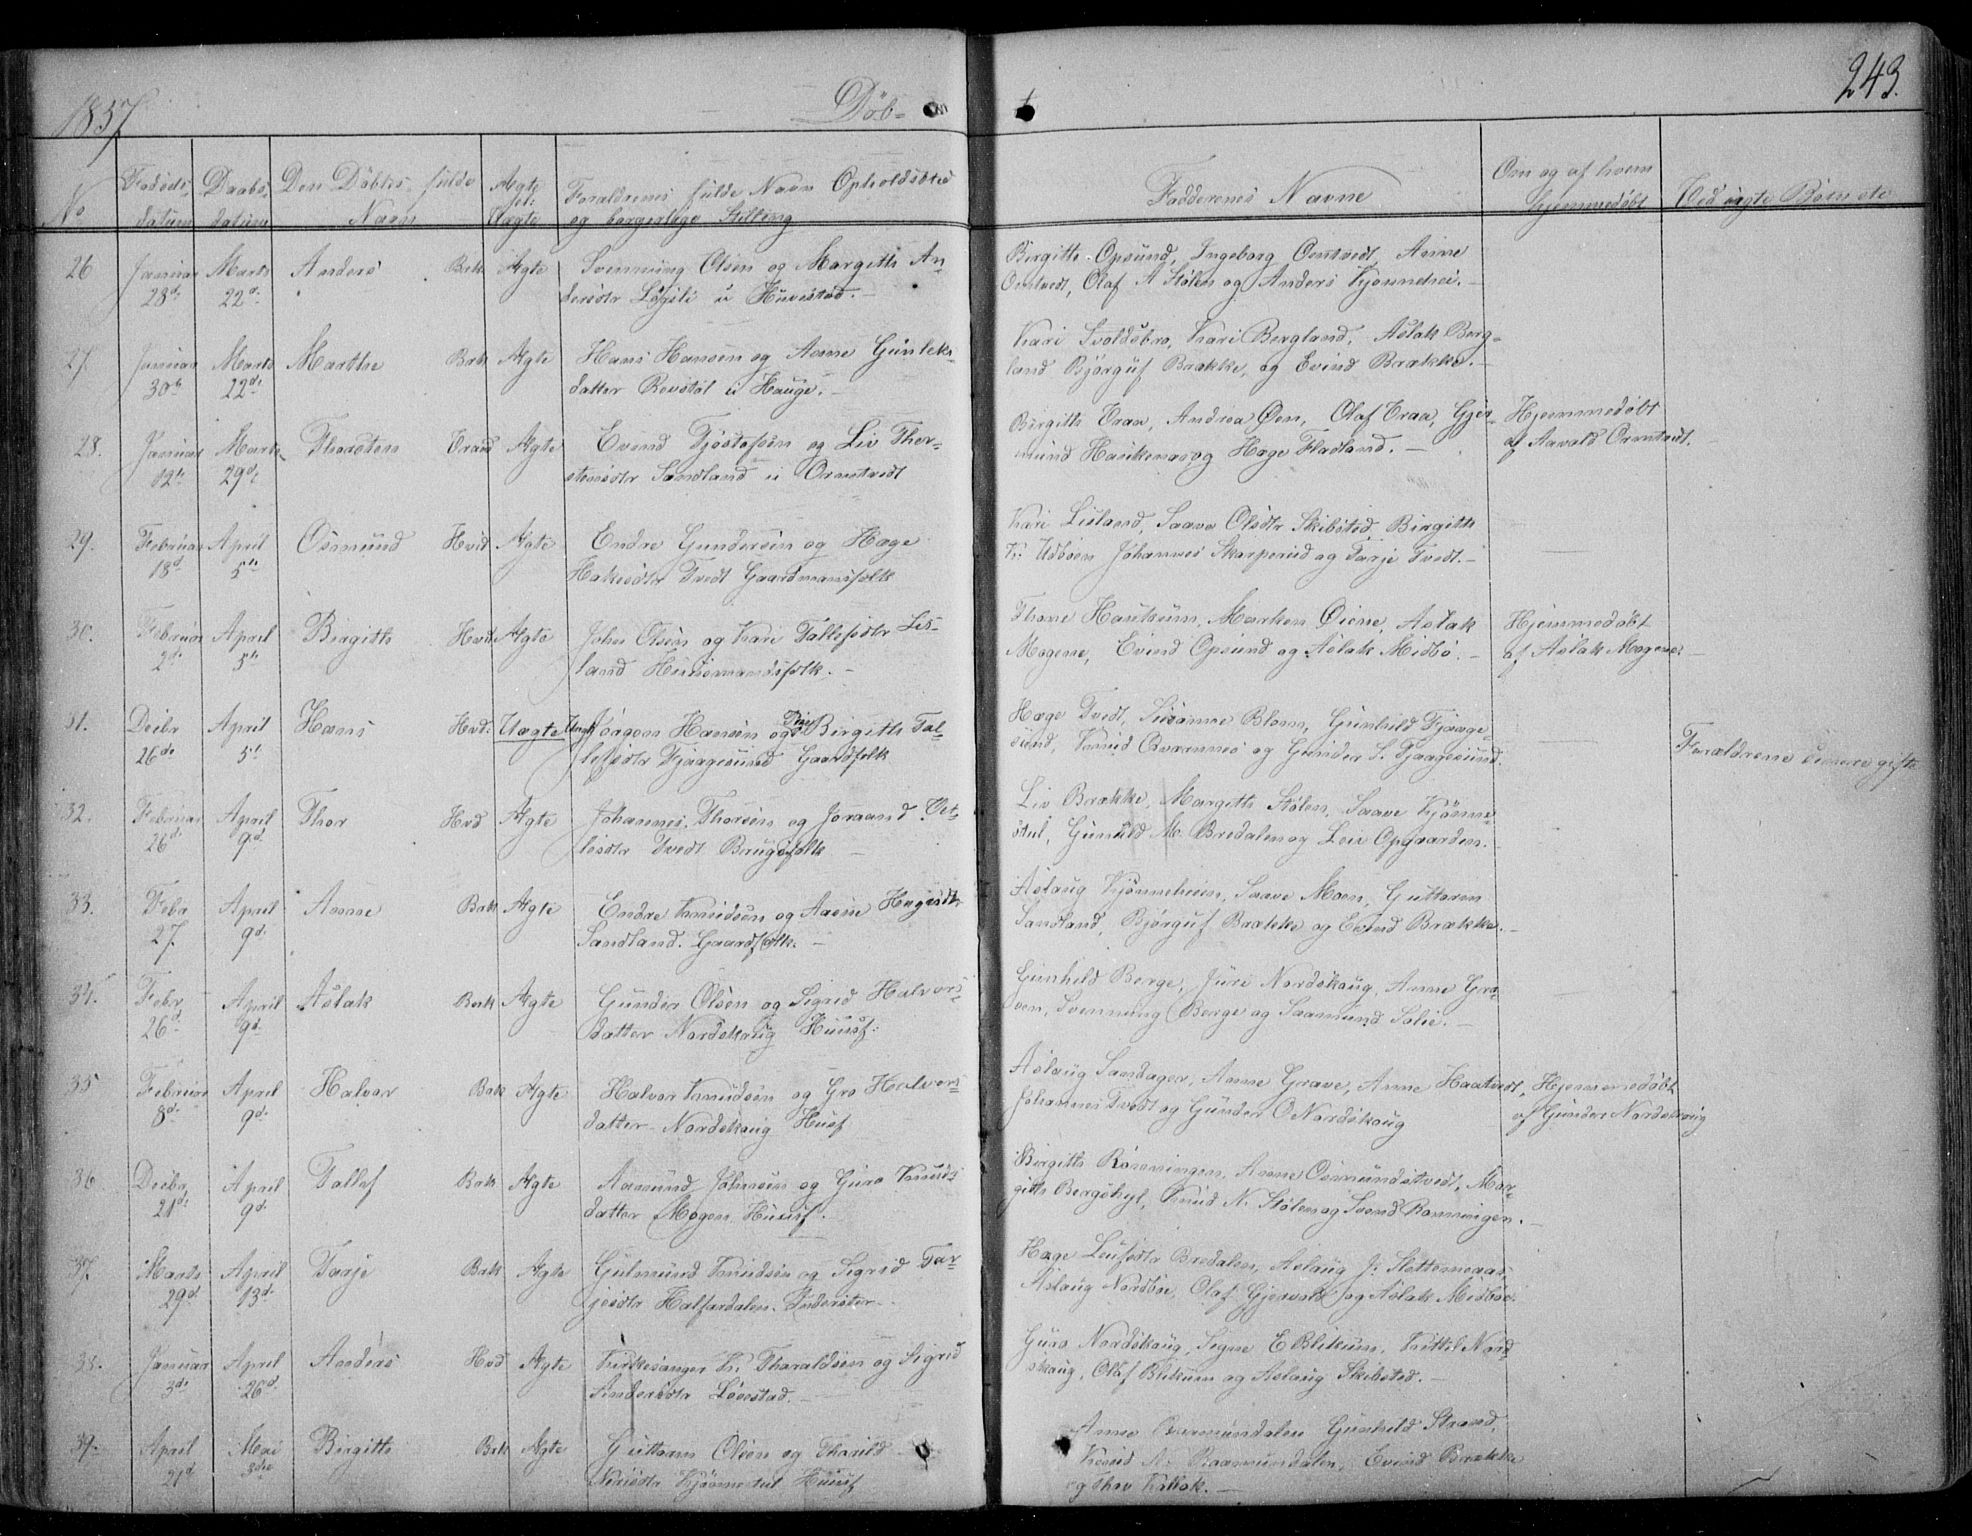 1857
Döb-
243.
No
Fødsels datum
Daabs datum
Den Döbtes fulde Navn
Ægte el: Uægte
Forældrenes fulde Navn Opholdssted
og borgerlige Stilling
Faddernes Navne
Om og af hvem hjemmedøbt
Ved uægte Børn etc
26 Januar 28d. Marts 22d. Anders Bak Ægte
Svennung Olsen og Margith An-
dersdtr Løgsli u Huvestad. —
Birgith Opsund, Ingeborg Omtvedt, Anne
Omtvedt, Olaf A Stölen og Anders Kjønnehei. —
27. Januar 30te Marts 22de Marthe Bak Ægte
Hans Hansen og Anne Gunleks-
datter Rovstøl u Hauge. —
Kari Svoldsbro, Kari Bergland, Aslak Berg-
land Bjørguf Brække, og Evind Brække. —
28. Januar 12te Marts 29de Thorsten Eraae Ægte
Evend Tjöstofsen og Liv Thor-
stensdtr Sandland u Ormtvedt
Birgith Eraa, Andrea Øen, Olaf Eraa, Gjer-
mund Haukenæs og Hæge Fladland. —
Hjemmedøbt
af Aavald Ormtvedt.
29. Februar 18d. April 5te Osmund Hvid. Ægte
Endre Gundersen og Hæge
Hakesdtr Tvedt Gaardmansfolk
Kari Lisland, Saave Olsdtr Skibsted, Birgith
K: Udböen Johannes Skarperud og Tarje Tvedt. —
30. Februar 2de April 5te Birgith Hvid Ægte
John Olsen og Kari Tallefsdtr Lis-
land Huusmandsfolk. —
Thone Haukum, Marken Øiene, Aslak
Mogene, Evind Opsund og Aslak Midbö. —
Hjemmedøbt
af Aslak Mogene.
31. Decbr 26de April 5te Hans Hvd: Uægte
Ungk Jörgen Hansen og Pige Birgith Tal-
lefsdtr Fjaagesund Gaardfolk
Hæge Tvedt, Susanne Blom, Gunhild Fjaage-
sund, Knud Qvamnes og Gunder S. Fjaagesund.
Forældrene senere gifte
32. Februar 26d. April 9d. Thor Hvd Ægte
Johannes Thorsen og Joraand Det-
lesdtr Tvedt Brugsfolk —
Liv Brække, Margith Stölen, Saave Kjönne-
stul, Gunuld M. Bredalen og Leiv Opgaarden. —
33. Febr 27. April 9d. Anne Bak Ægte
Endre Knudsen og Aasne Hegesdtr
Sandland. Gaardfolk. —
Aslaug Kjønneheien, Saave Moen, Guttorm
Sandland, Bjørguf Brække og Evind Brække. —
34. Febr 26d. April 9d. Aslak Bak Ægte
Gunder Olsen og Sigrid Halvors-
datter Nordskaug Huusf:
Gunhild Berge, Juri Nordskaug, Anne Gra-
ven, Svennung Berge og Saamund Solie. —
35 Februar 8d. April 9d. Halvor Bak Ægte
Halvor Knudsen og Gro Halvors-
datter Nordskaug Husf
Aslaug Sandager, Anne Grave, Anne Haatvedt,
Johannes Tvedt og Gunder O Nordskaug
Hjemmedøbt
af Gunder Nordskaug
36. Decbr 21de April 9d. Tallef Bak Ægte
Aamund Johnsen og Guro Knuds-
datter Mogen Huusf. —
Birgith Rönningen, Anne Osmundstvedt, Mar-
gith Bergskyl, Knud N. Stölen og Svend Rønningen. —
37. Marts 29d. April 13d. Tarje Bak Ægte
Gulmund Knudsen og Sigrid Tar-
jesdtr Halfardalen. Inderster. —
Hæge Leufsdtr Bredalen, Aslaug J: Slettemeaas,
Aslaug Nordböe, Olaf Gjervold og Aslak Midböe.
38. Januar 3de April 26d. Anders Hvd Ægte
Kirkesanger K. Tharaldsen og Sigrid
Andersdtr Lövestad. —
Guro Nordskaug, Signe E Blikum, Kittil Nord-
skaug, Olaf Blikum og Aslaug Skibsted. —
39. April 21d Mai 3die Birgith Bak Ægte
Guttorm Olsen og Tharild
Nirisdtr Kjönnestul Huusf
Anne Raamundalen Gunhild Strand,
Knud N. Raamundalen, Evind Brække
og Thov Kaltok. —